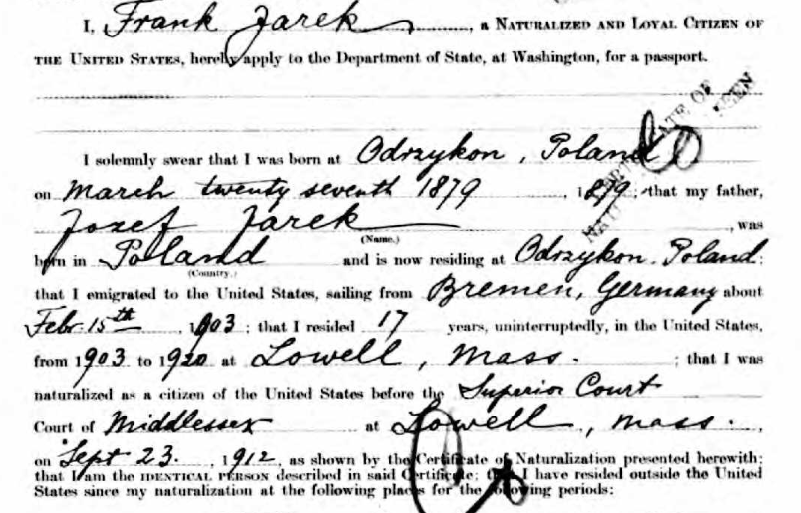 I, Frank Jarek, a NATURALIZED AND LOYAL CITIZEN OF
THE UNITED STATES, hereby apply to the Department of State, at Washington, for a passport.
I solemnly swear that I was born at Odrzykon, Poland
on March twenty seventh 1879, 1879; that my father,
Jozef Jarek, was
(Name.)
born in Poland and is now residing at Odrzykon, Poland;
(Country.)
that I emigrated to the United States, sailing from Bremen, Germany about
Febr. 15th, 1903; that I resided 17 years, uninterruptedly, in the United States,
from 1903 to 1920 at Lowell, Mass.; that I was
naturalized as a citizen of the United States before the Superior Court
Court of Middlessex at Lowell, Mass.,
on Sept 23, 1912, as shown by the Certificate of Naturalization presented herewith;
that I am the IDENTICAL PERSON described in said Certificate; that I have resided outside the United
States since my naturalization at the following places for the following periods: